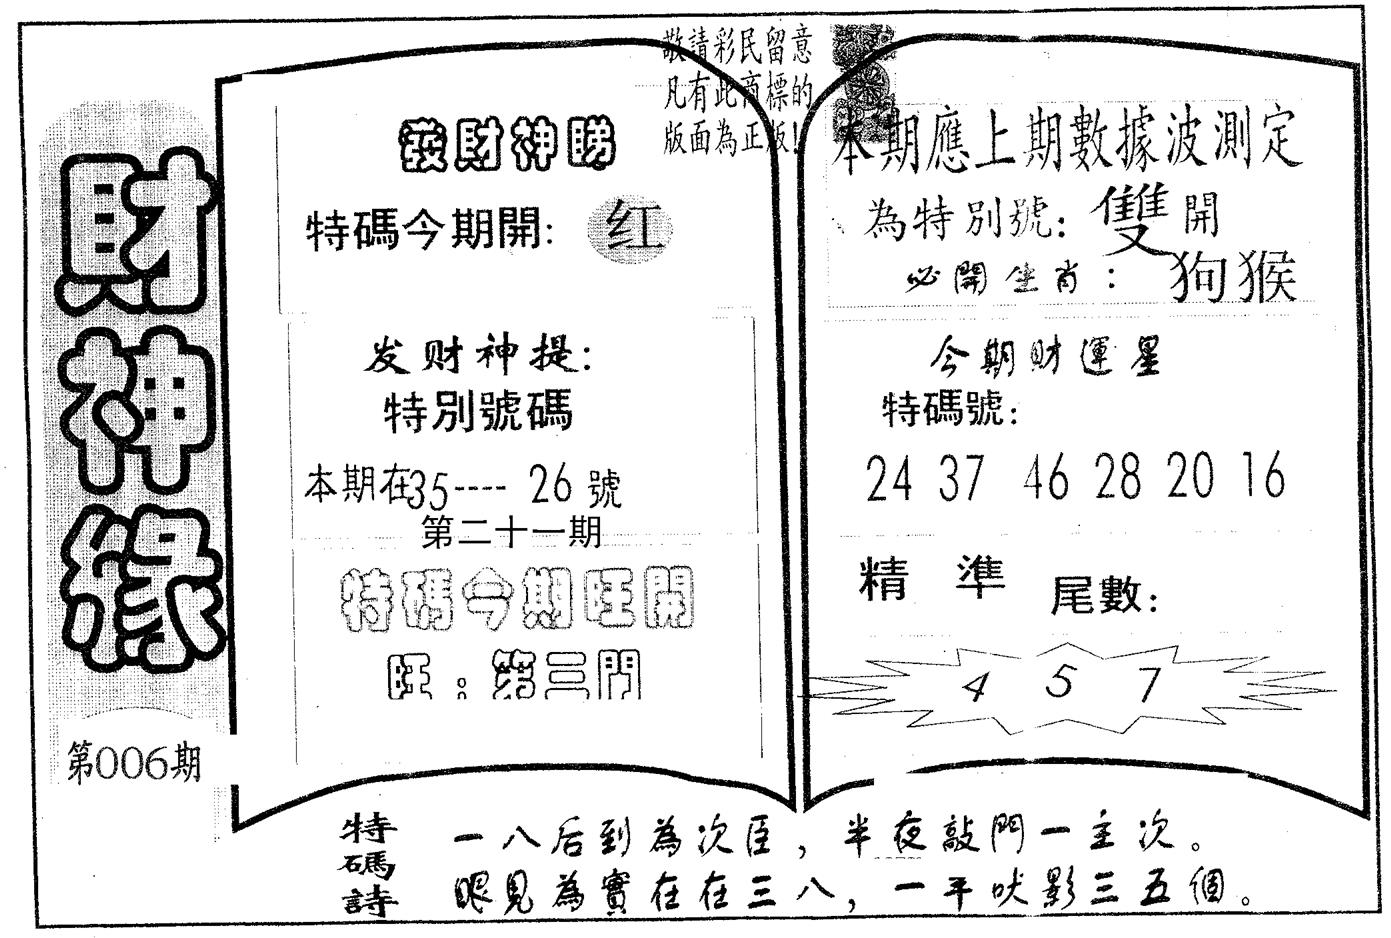 敬請彩民留意
凡有此商標的
版面為正版!
財神緣
第006期
發財神睇
特碼今期開: 红
发财神提:
特別號碼
本期在35---- 26號
第二十一期
特碼今期旺開
旺:第三門
本期應上期數據波測定
為特別號: 雙開
必開生肖: 狗猴
今期財運星
特碼號:
24 37 46 28 20 16
精 準 尾數:
4 5 7
特碼詩
一八后到為次臣,半夜敲門一主次。
眼見為實在在三八,一平吠影三五個。